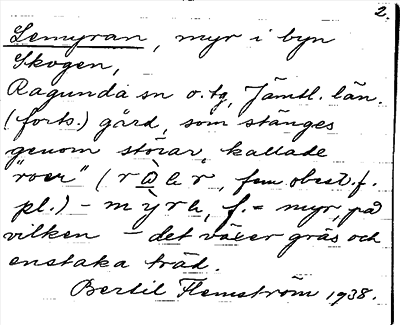 2.
Lemyran, myr i byn
Skogen,
Ragunda sn o. tg, Jämtl. län.
(forts.) gård, som stänges
genom störar, kallade
"roer" (r , fem. obest. f.
pl.) – mỳrɛ, f. = myr, på
vilken – det växer gräs och
enstaka träd.
Bertil Flemström 1938.